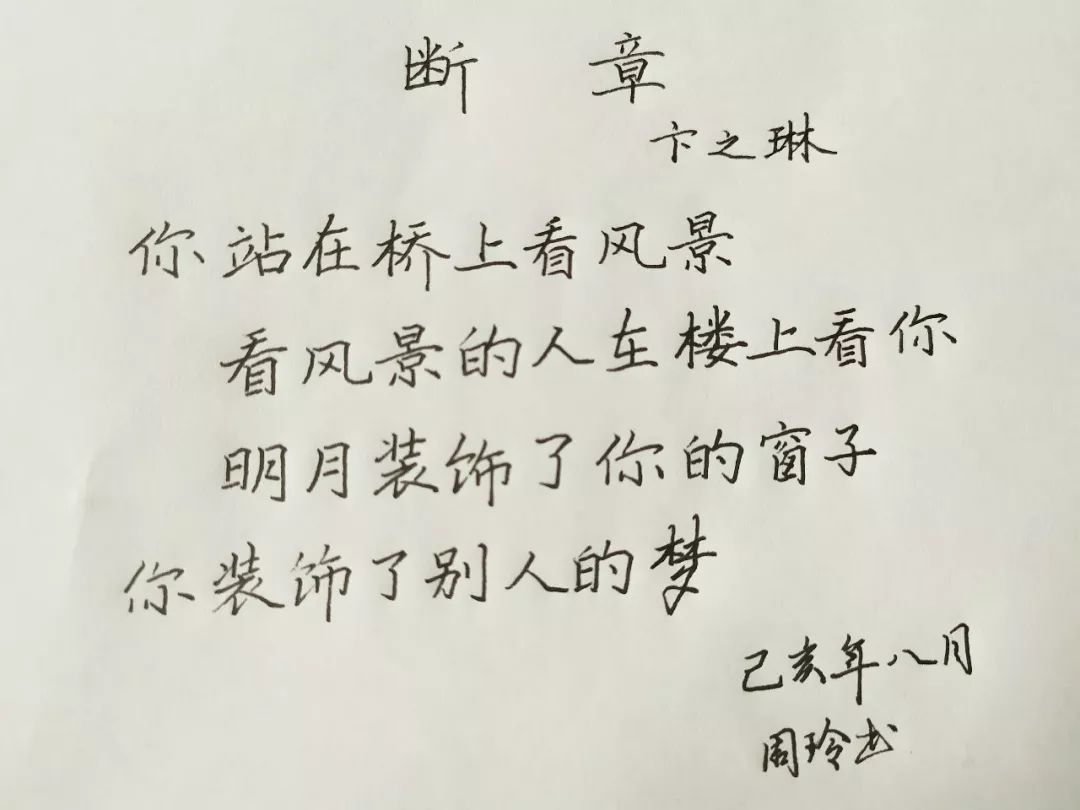 断章
卞之琳
你站在桥上看风景
看风景的人在楼上看你
明月装饰了你的窗子
你装饰了别人的梦
己亥年八月
周玲书